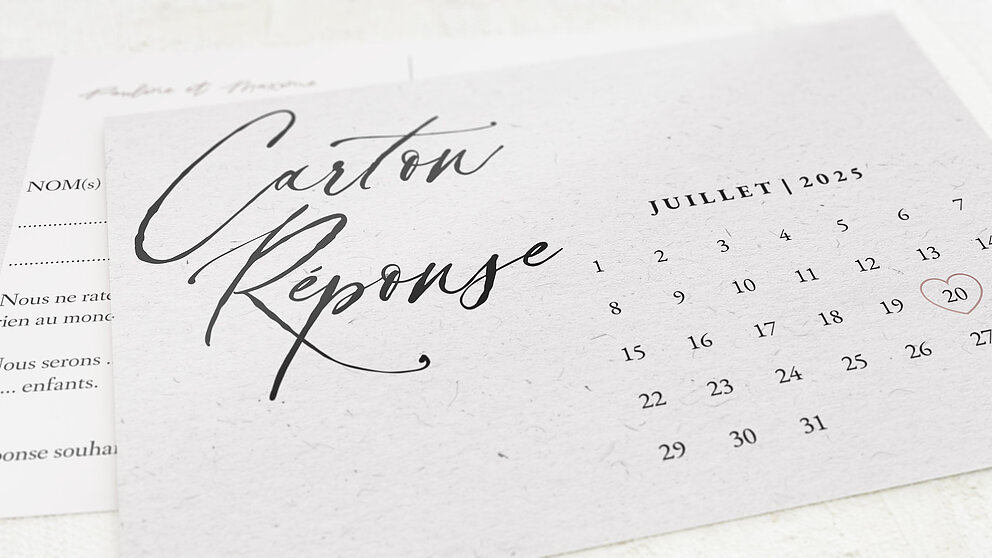 Pauline et Maxime
NOM(s)
Nous ne rate
rien au mond
Nous serons ..
... enfants.
ponse souhai
Carton
Réponse
JUILLET | 2025
1 2 3 4 5 6 7
8 9 10 11 12 13 14
15 16 17 18 19 20
22 23 24 25 26 27
29 30 31